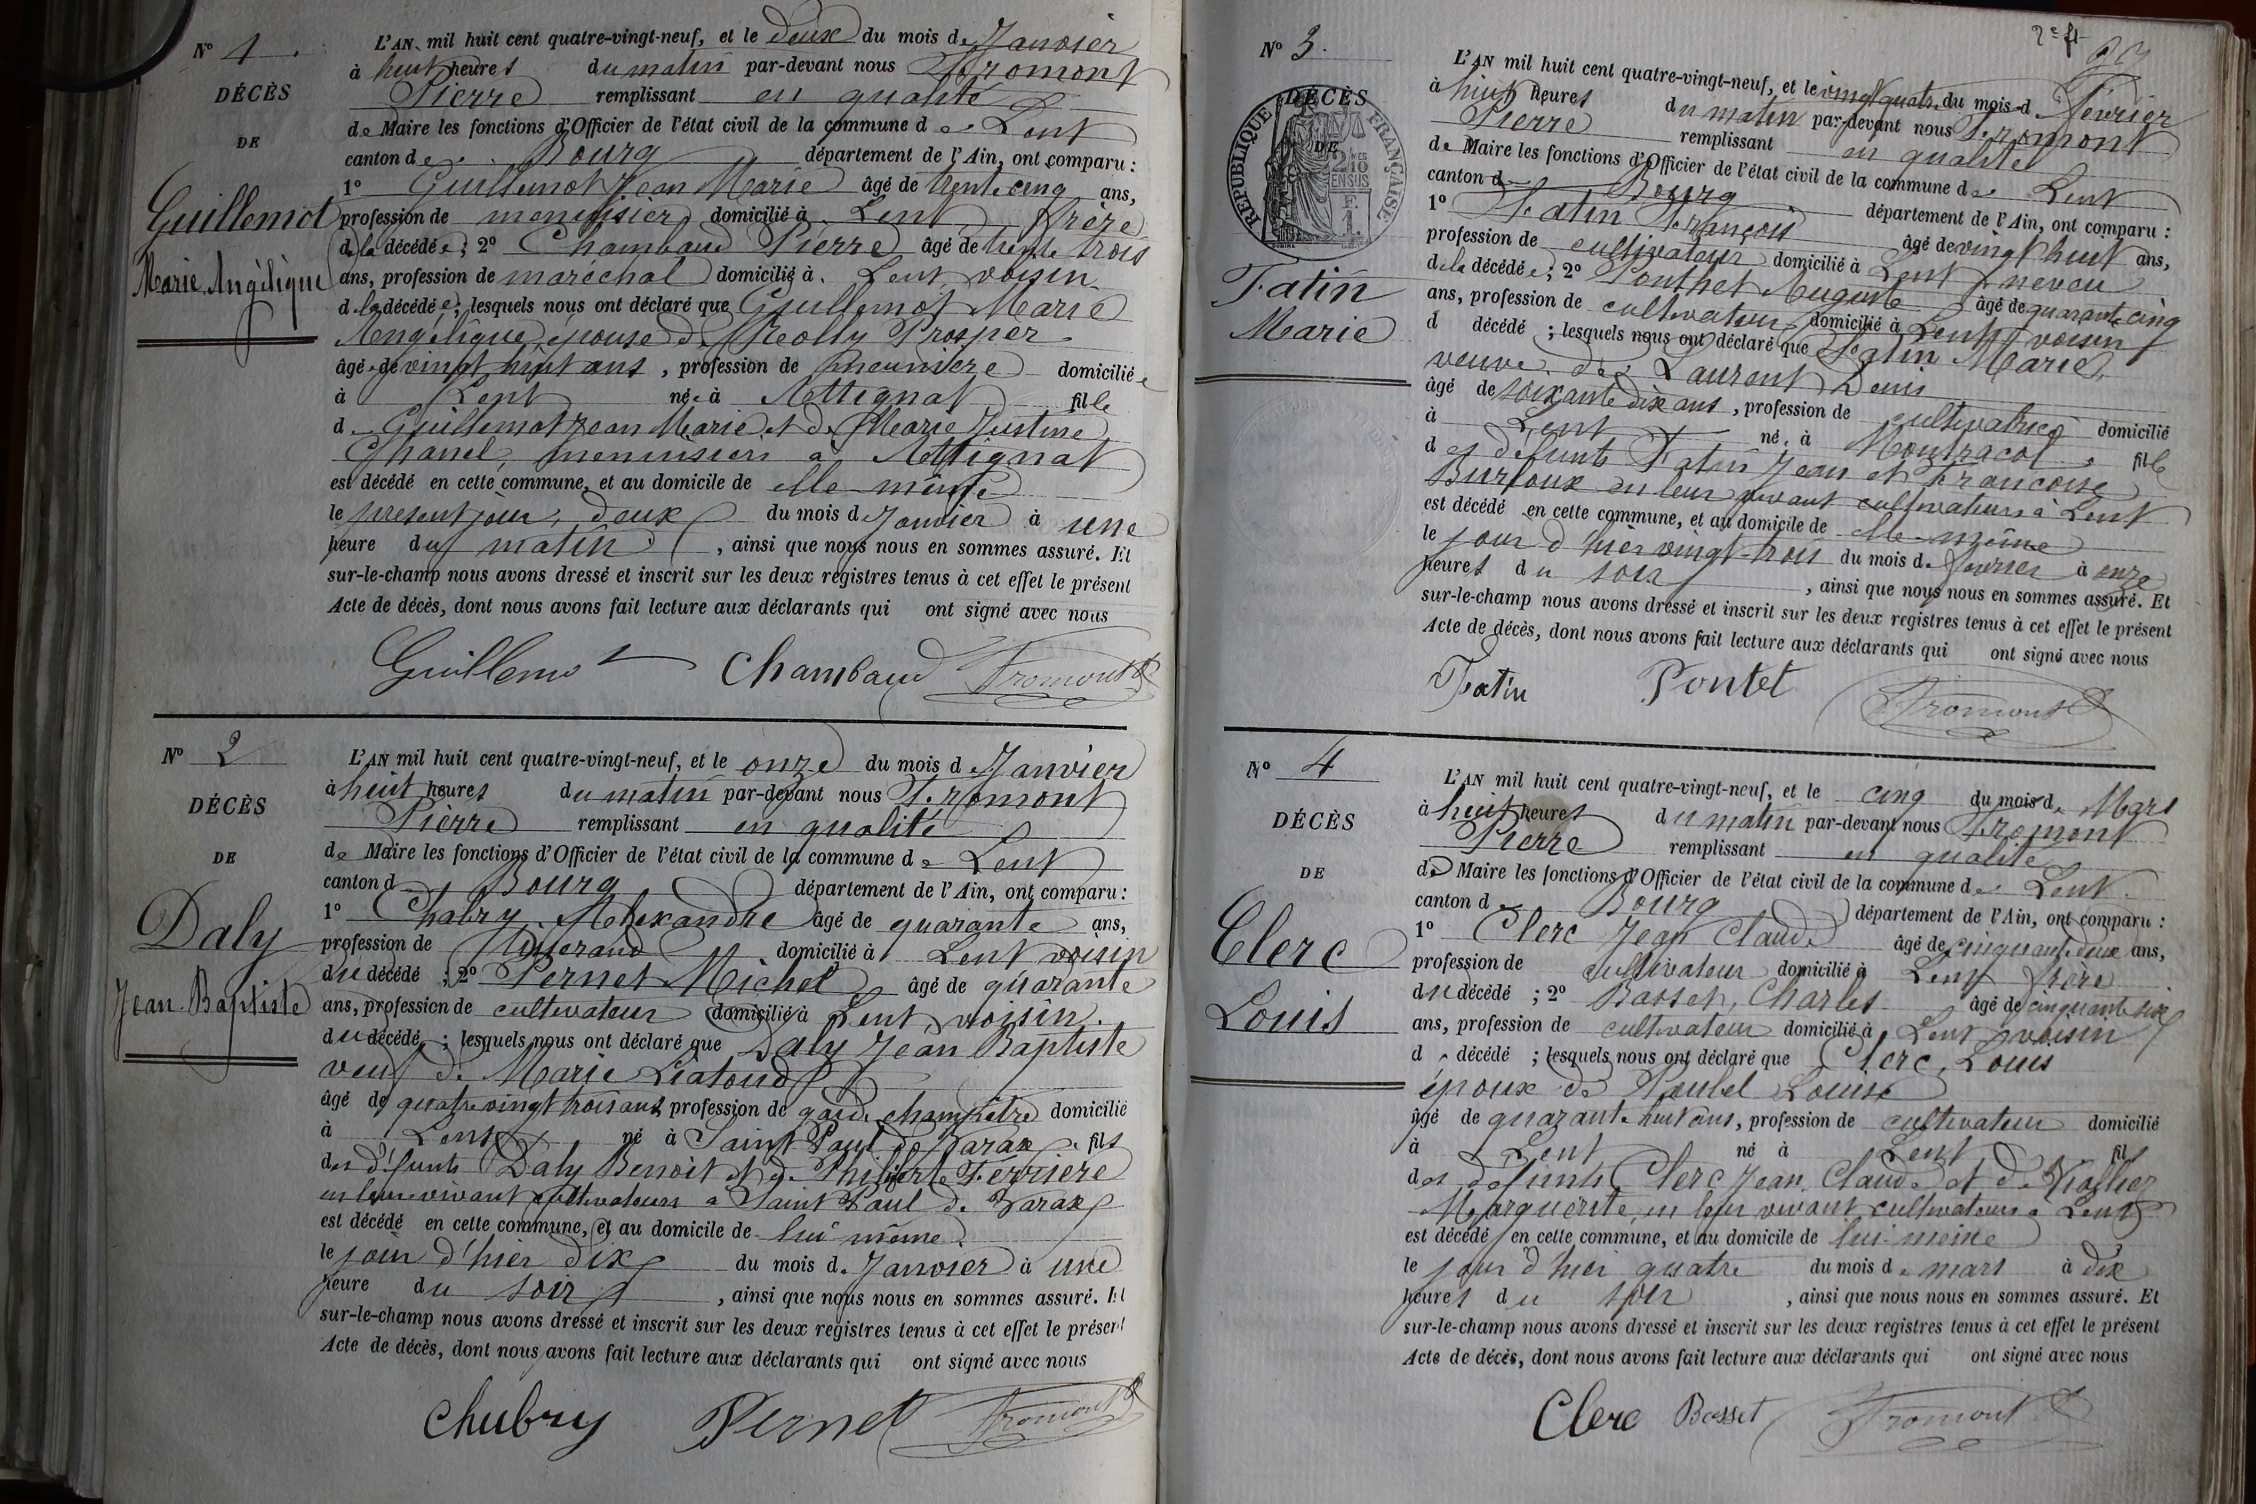 N° 1.
DÉCÈS
DE
Guillemot
Marie Angélique
L'AN mil huit cent quatre-vingt-neuf, et le deux du mois de Janvier
à huit heures du matin par-devant nous Fromont
Pierre remplissant en qualité
de Maire les fonctions d'Officier de l'état civil de la commune de Lent
canton de Bourg département de l'Ain, ont comparu :
1° Guillemot Jean Marie âgé de trente cinq ans,
profession de menuisier domicilié à Lent frère
de la décédée ; 2° Chambaud Pierre âgé de trente trois
ans, profession de maréchal domicilié à Lent, voisin
de la décédée ; lesquels nous ont déclaré que Guillemot Marie
Angélique, épouse de Réolly Prosper
âgé de vingt huit ans, profession de meunière domiciliée
à Lent née à Attignat fille
de Guillemot Jean Marie et de Marie Justine
Chanel, menuisiers à Attignat
est décédé en cette commune, et au domicile de elle même
le présent jour, deux du mois de Janvier à une
heure du matin, ainsi que nous nous en sommes assuré. Et
sur-le-champ nous avons dressé et inscrit sur les deux registres tenus à cet effet le présent
Acte de décès, dont nous avons fait lecture aux déclarants qui ont signé avec nous
Guillemot Chambaud Fromont
N° 2
DÉCÈS
DE
Daly
Jean-Baptiste
L'AN mil huit cent quatre-vingt-neuf, et le onze du mois de Janvier
à huit heures du matin par-devant nous Fromont
Pierre remplissant en qualité
de Maire les fonctions d'Officier de l'état civil de la commune de Lent
canton de Bourg département de l'Ain, ont comparu :
1° Chabry Alexandre âgé de quarante ans,
profession de Tisserand domicilié à Lent voisin
du décédé ; 2° Pernet Michel âgé de quarante
ans, profession de cultivateur domicilié à Lent, voisin.
du décédé ; lesquels nous ont déclaré que Daly Jean Baptiste
veuf de Marie Liatoud
âgé de quatre vingt trois ans profession de garde champêtre domicilié
à Lent né à Saint Paul de Varax fils
des défunts Daly Benoit et de Philiberte Ferrière
en leur vivant cultivateurs à Saint Paul de Varax
est décédé en cette commune, et au domicile de lui même.
le jour d'hier dix du mois de Janvier à une
heure du soir, ainsi que nous nous en sommes assuré. Et
sur-le-champ nous avons dressé et inscrit sur les deux registres tenus à cet effet le présent
Acte de décès, dont nous avons fait lecture aux déclarants qui ont signé avec nous
Chubry Pernet Fromont
2e ft
N° 3.
DÉCÈS
DE
RÉPUBLIQUE FRANÇAISE
Fatin
Marie
L'AN mil huit cent quatre-vingt-neuf, et le vingt quatre du mois de Février
à huit heures du matin par-devant nous Fromont
Pierre remplissant en qualité
de Maire les fonctions d'Officier de l'état civil de la commune de Lent
canton de Bourg département de l'Ain, ont comparu :
1° Fatin François âgé de vingt huit ans,
profession de cultivateur domicilié à Lent neveu
de la décédée ; 2° Ponthet Auguste âgé de quarante cinq
ans, profession de cultivateur domicilié à Lent voisin
d décédé ; lesquels nous ont déclaré que Fatin Marie,
veuve de Laurent Denis
âgé de soixante dix ans, profession de cultivatrice domicilié
à Lent née à Montracol fille
des défunts Fatin Jean et Françoise
Burtoux en leur vivant cultivateurs à Lent
est décédé en cette commune, et au domicile de elle-même
le jour d'hier vingt-trois du mois de février à onze
heures du soir, ainsi que nous nous en sommes assuré. Et
sur-le-champ nous avons dressé et inscrit sur les deux registres tenus à cet effet le présent
Acte de décès, dont nous avons fait lecture aux déclarants qui ont signé avec nous
Fatin Pontet Fromont
N° 4
DÉCÈS
DE
Clerc
Louis
L'AN mil huit cent quatre-vingt-neuf, et le cinq du mois de Mars
à huit heures du matin par-devant nous Fromont
Pierre remplissant en qualité
de Maire les fonctions d'Officier de l'état civil de la commune de Lent
canton de Bourg département de l'Ain, ont comparu :
1° Clerc Jean Claude âgé de cinquante deux ans,
profession de cultivateur domicilié à Lent frère
du décédé ; 2° Basset, Charles âgé de cinquante six
ans, profession de cultivateur domicilié à Lent voisin
d décédé ; lesquels nous ont déclaré que Clerc, Louis
époux de Louise
âgé de quarante huit ans, profession de cultivateur domicilié
à Lent né à Lent fils
des défunts Clerc Jean Claude et de Viallier
Marguerite, en leur vivant cultivateurs à Lent
est décédé en cette commune, et au domicile de lui-même
le jour d'hier quatre du mois de mars à dix
heures du soir, ainsi que nous nous en sommes assuré. Et
sur-le-champ nous avons dressé et inscrit sur les deux registres tenus à cet effet le présent
Acte de décès, dont nous avons fait lecture aux déclarants qui ont signé avec nous
Clerc Basset Fromont